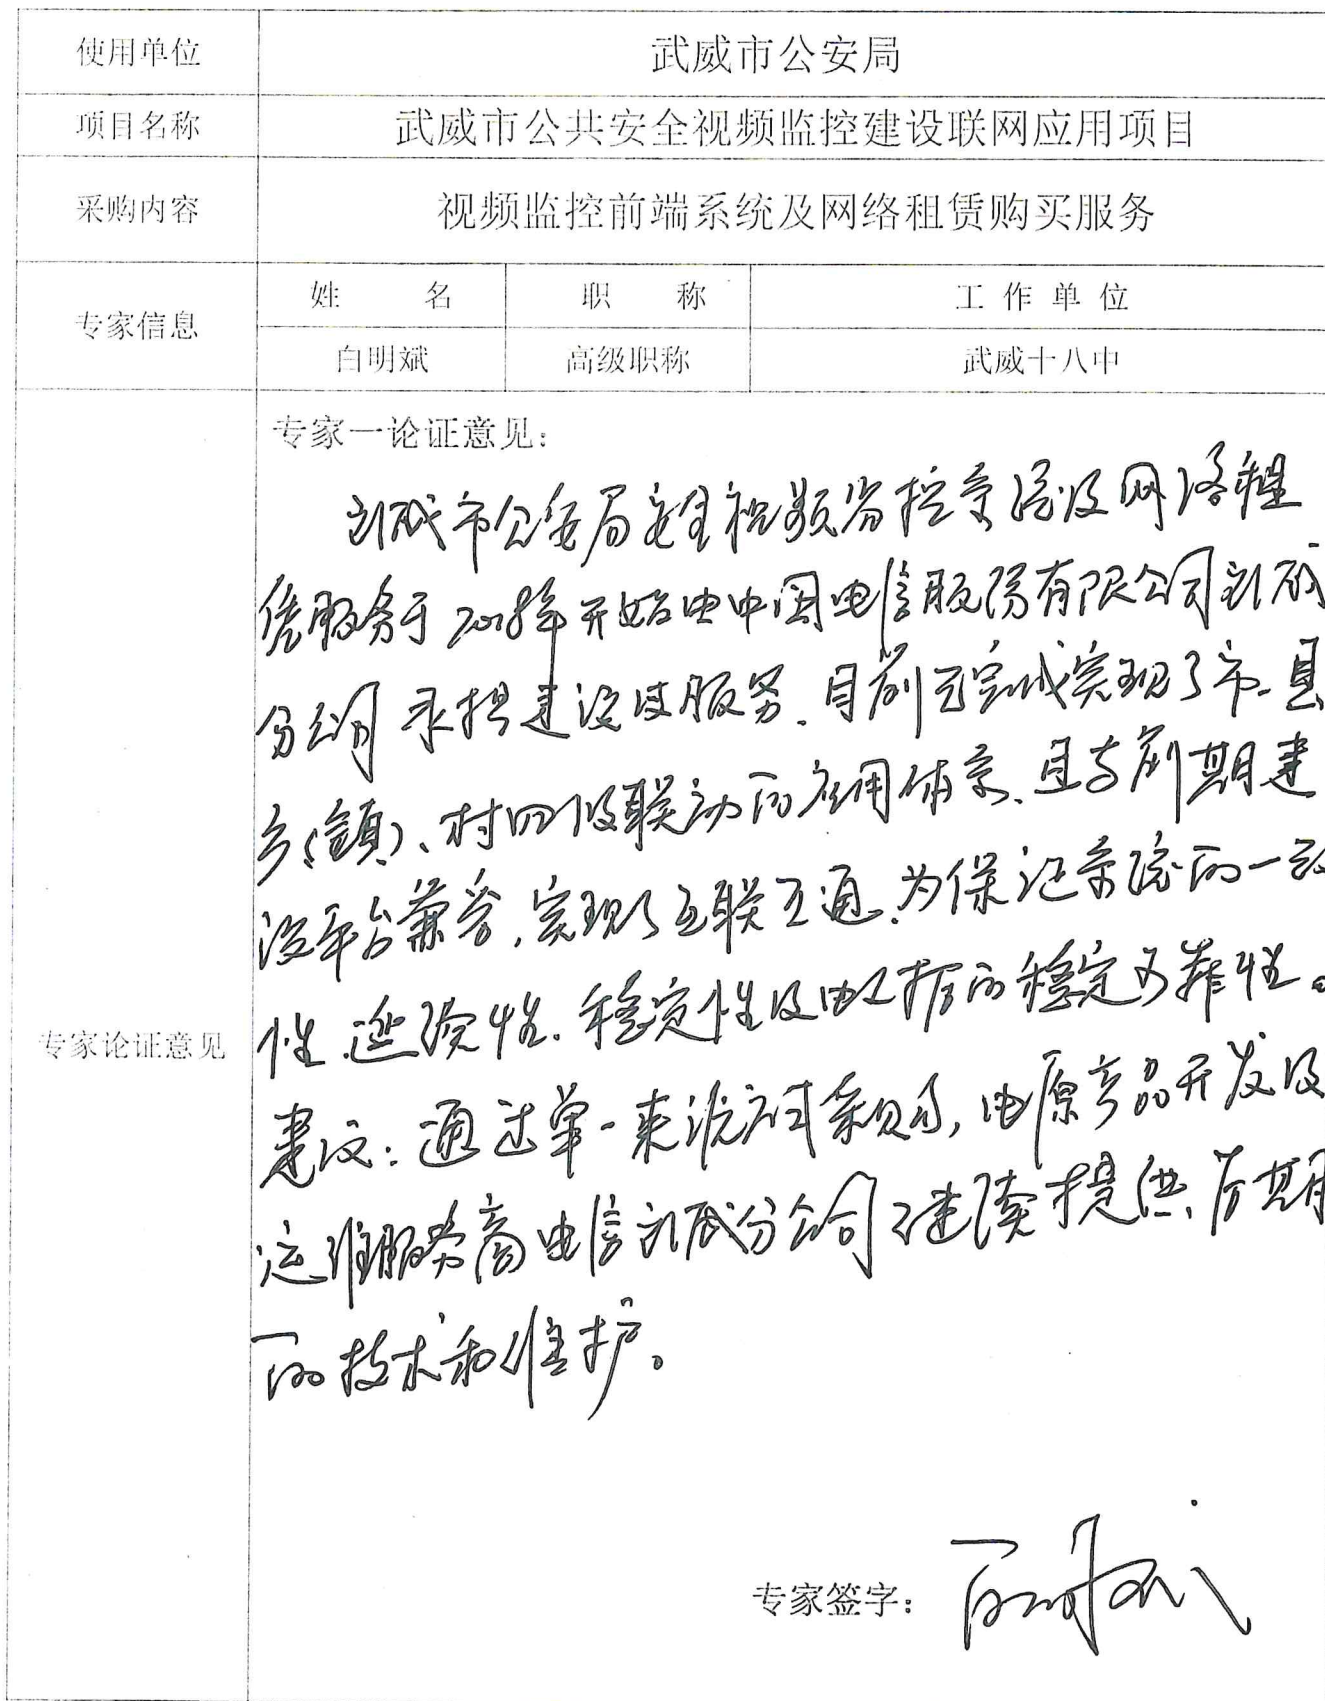 使用单位 武威市公安局
项目名称 武威市公共安全视频监控建设联网应用项目
采购内容 视频监控前端系统及网络租赁购买服务
专家信息 姓名 职称 工作单位
白明斌 高级职称 武威十八中
专家论证意见
专家一论证意见：
武威市公安局安全视频监控系统及网络租
赁服务于2018年开始由中国电信股份有限公司武威
分公司承担建设及服务、目前已完成实现了市、县
乡(镇)、村四级联动的应用体系、且与前期建
设平台兼容,实现了互联互通、为保证系统的一致
性、连续性、稳定性及的稳定可靠性。
建议：通过单一来源方式采购,由原产品开发及
运维服务商电信武威分公司继续提供后期
的技术和维护。
专家签字：白明斌